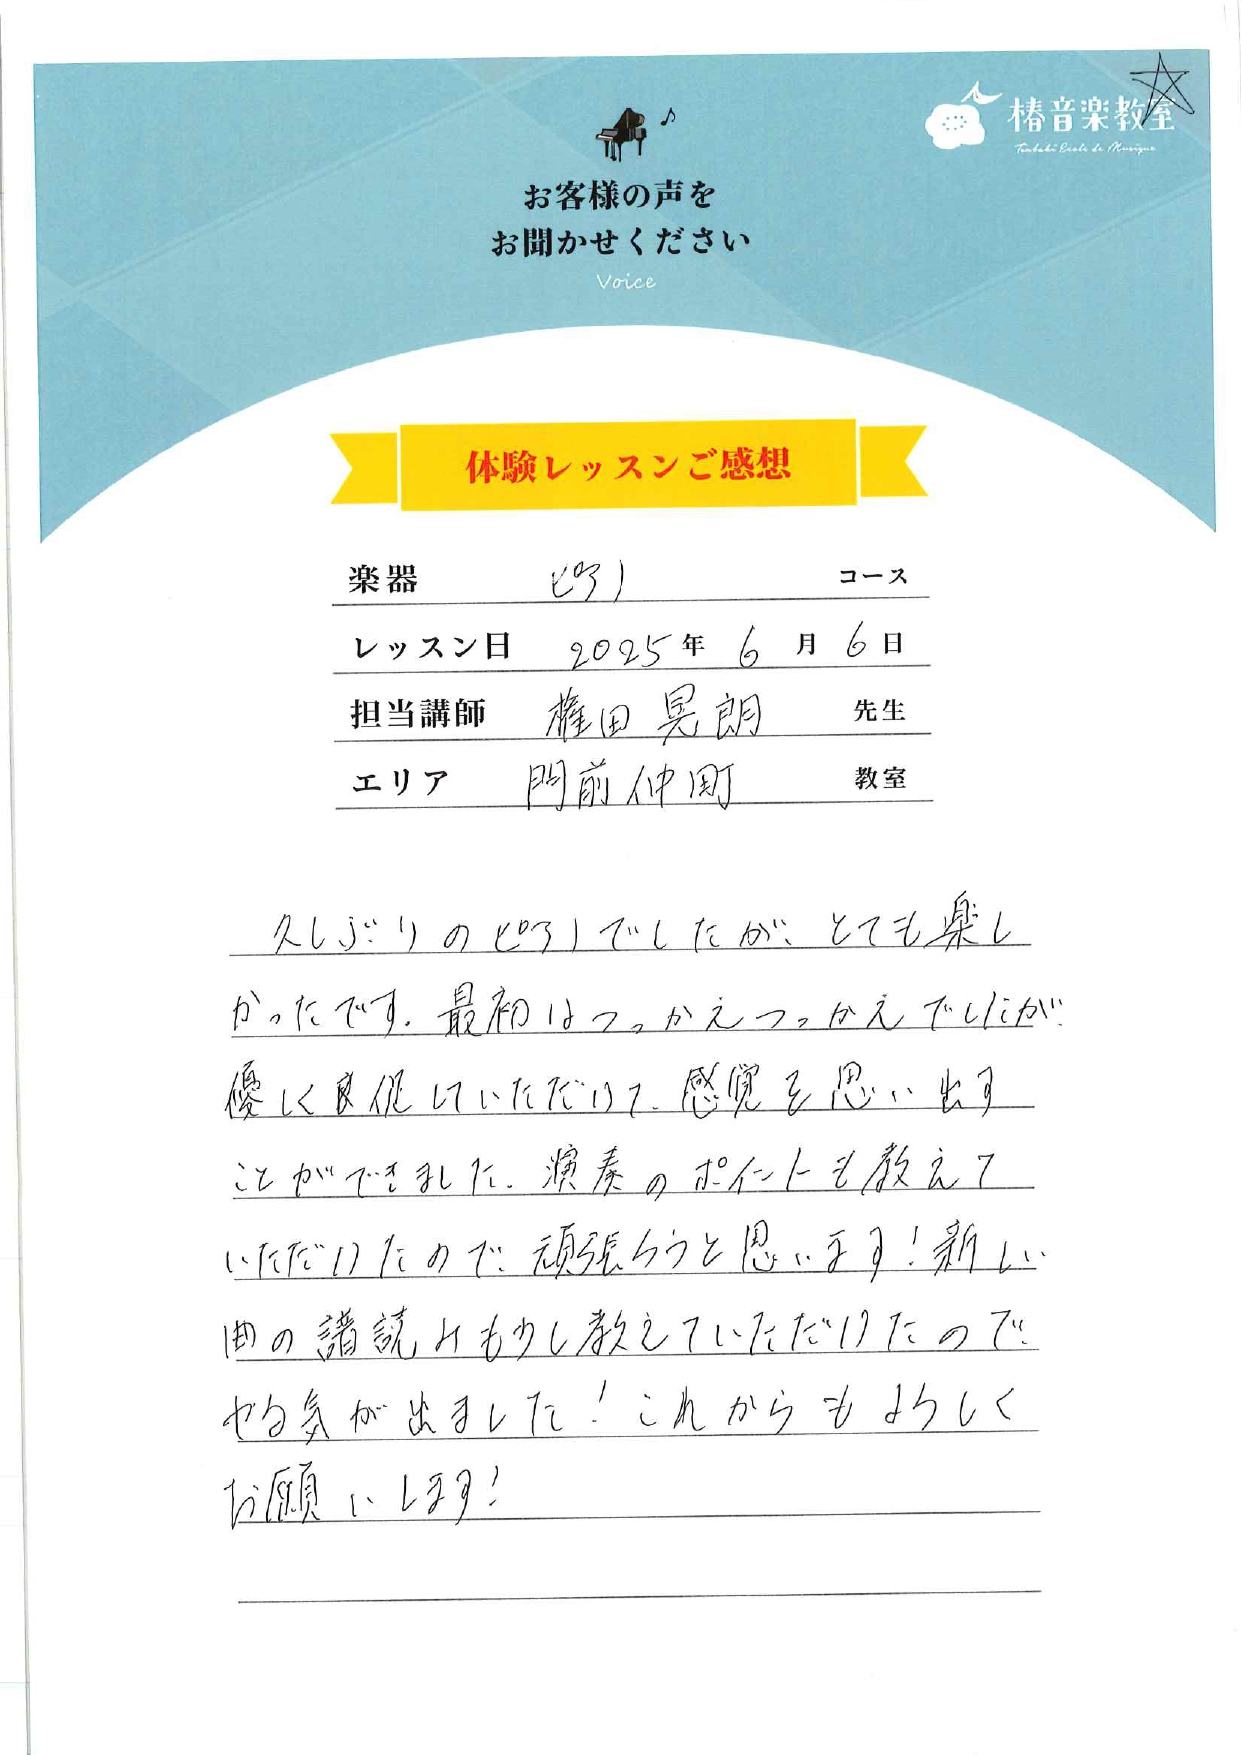 椿音楽教室
Tsubaki Ecole de Musique
お客様の声を
お聞かせください
Voice
体験レッスンご感想
楽器 ピアノ コース
レッスン日 2025年 6月 6日
担当講師 権田 晃朗 先生
エリア 門前仲町 教室
久しぶりのピアノでしたが、とても楽し
かったです。最初はつっかえつっかえでしたが
優しく促していただけて、感覚を思い出す
ことができました。演奏のポイントも教えて
いただけたので、頑張ろうと思います！新しい
曲の譜読みも少し教えていただけたので、
やる気が出ました！これからもよろしく
お願いします！